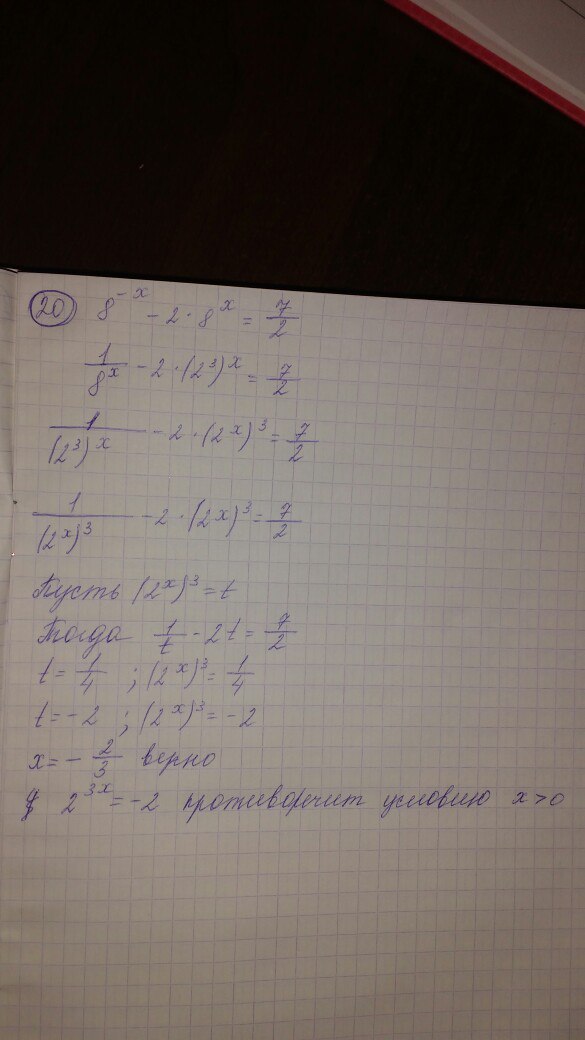 20 8^{-x} - 2 · 8^x = 7/2
1/8^x - 2 · (2^3)^x = 7/2
1/(2^3)^x - 2 · (2^x)^3 = 7/2
1/(2^x)^3 - 2 · (2^x)^3 = 7/2
Пусть (2^x)^3 = t
Тогда 1/t - 2t = 7/2
t = 1/4 ; (2^x)^3 = 1/4
t = -2 ; (2^x)^3 = -2
x = - 2/3 верно
2^{3x} = -2 противоречит условию x > 0